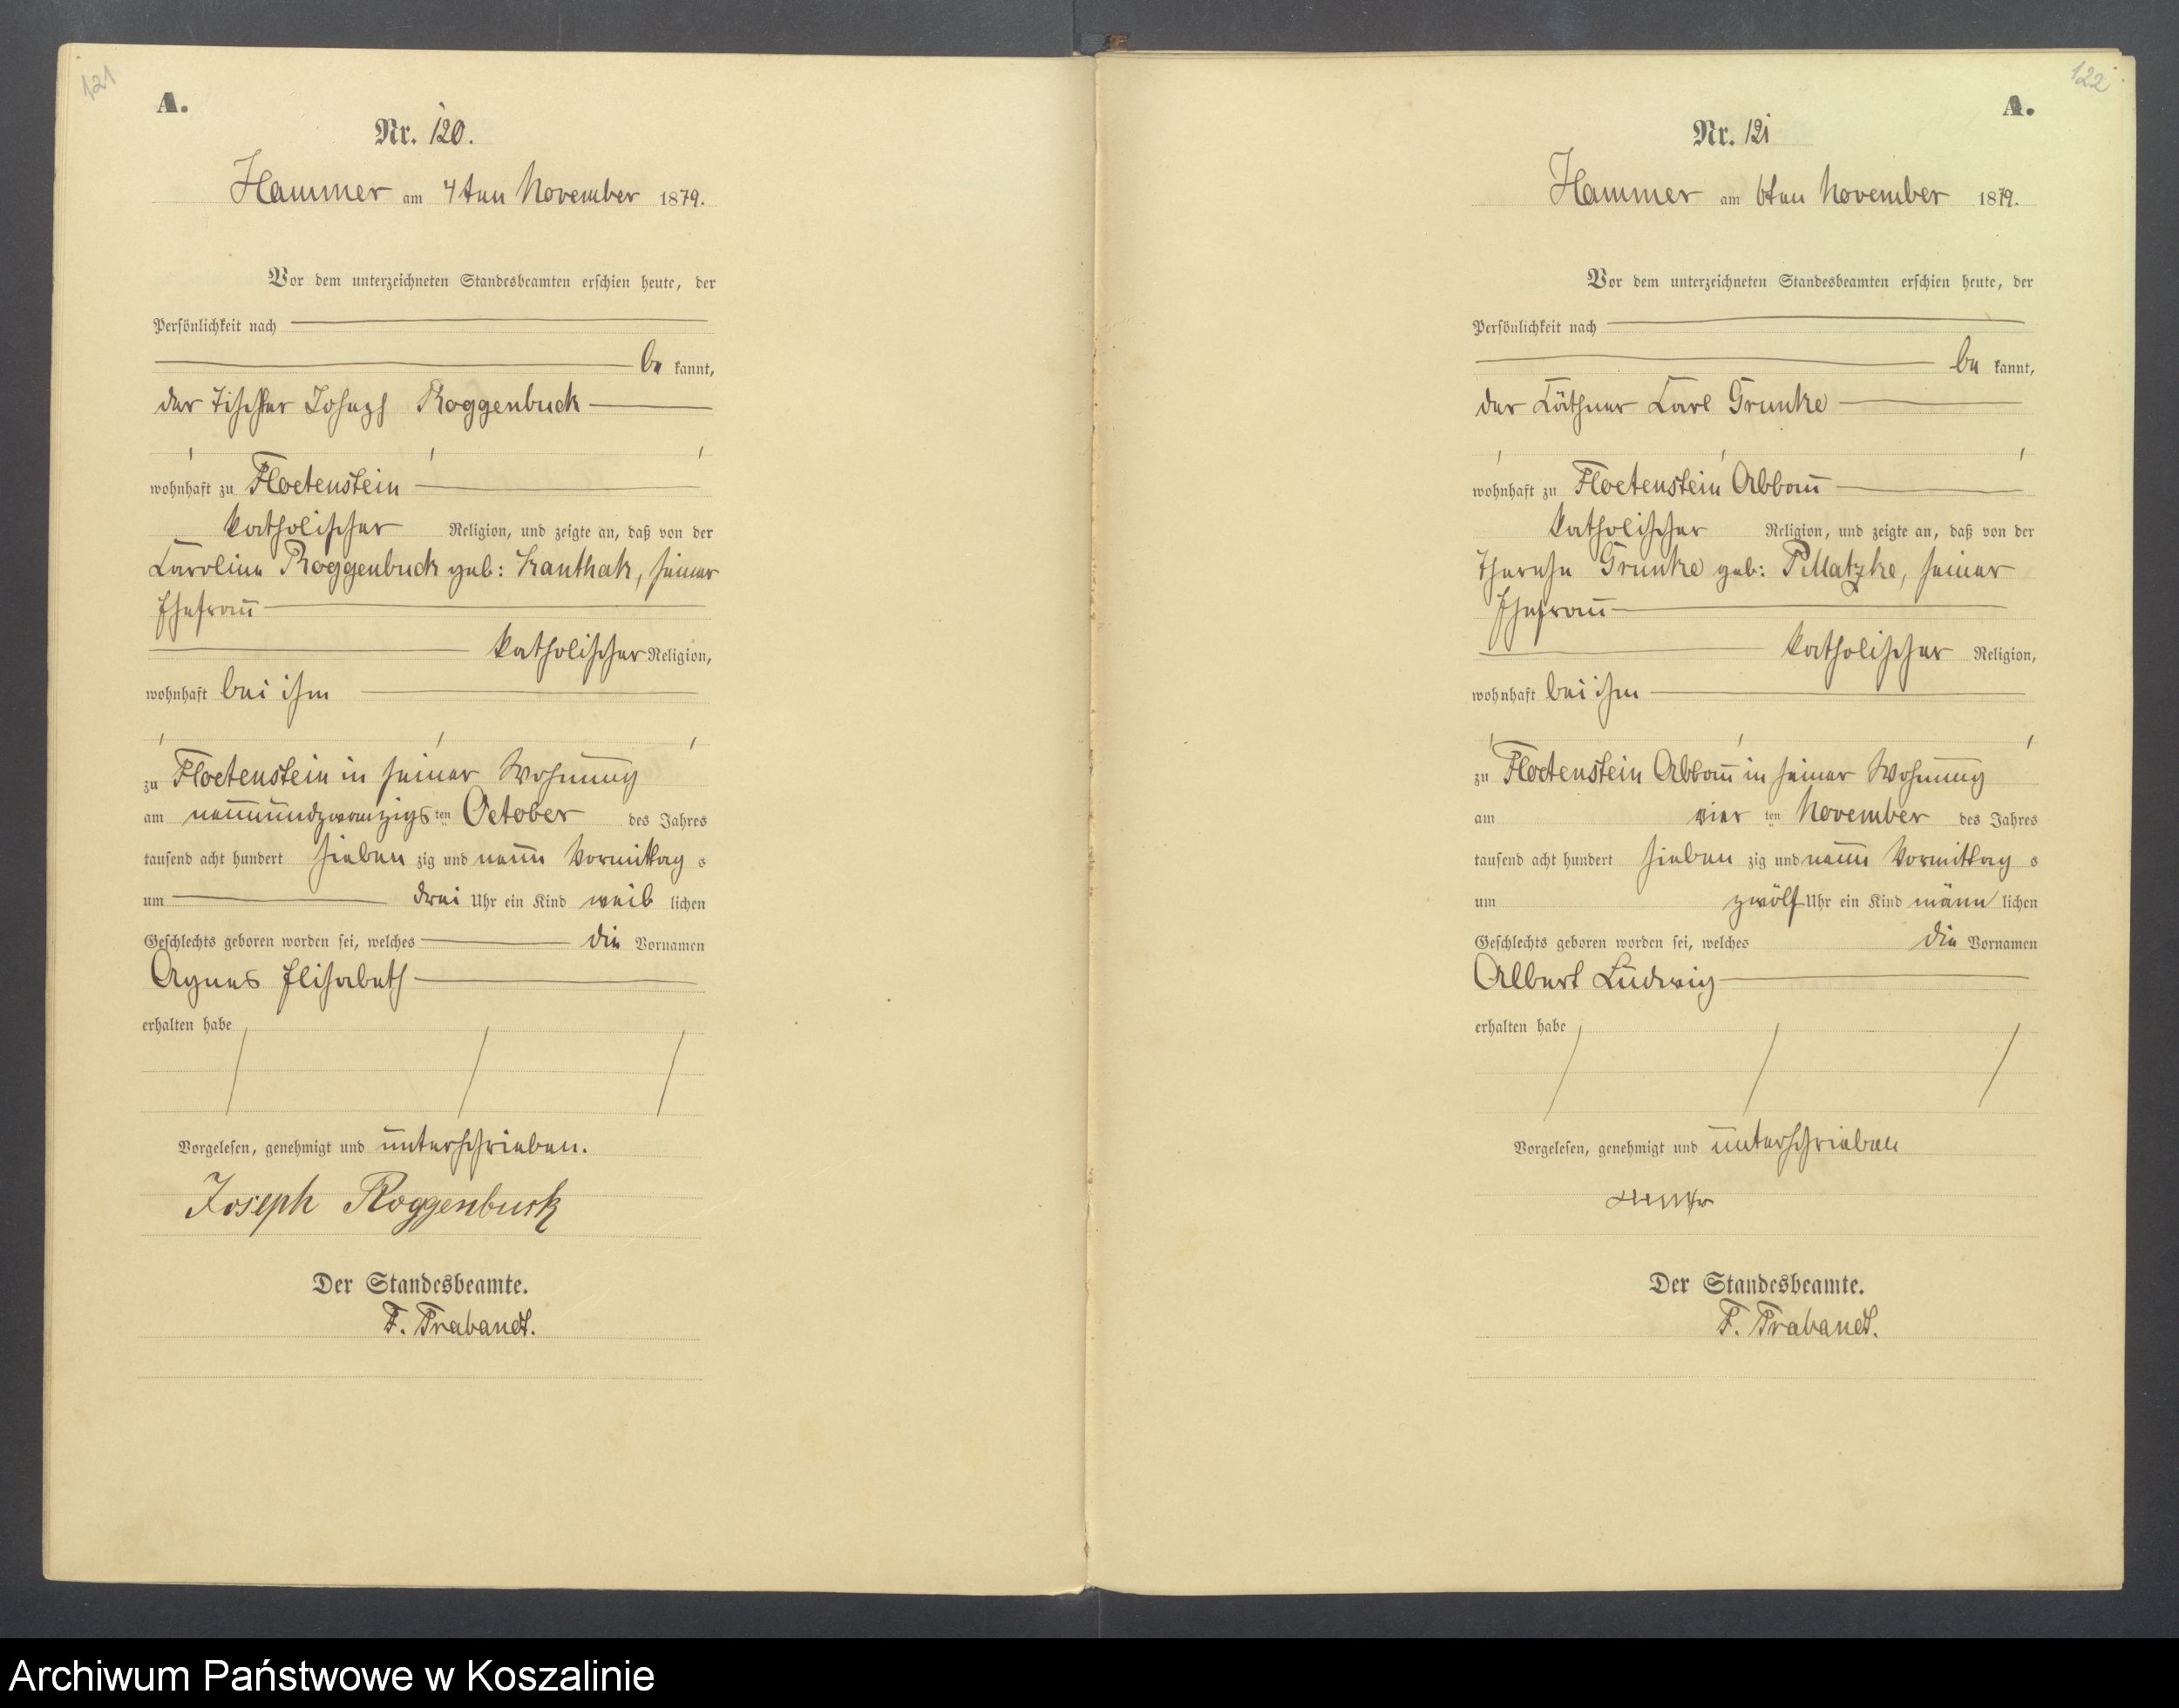 121
A.
Nr. 120.
Hammer am 4ten November 1879.
Vor dem unterzeichneten Standesbeamten erschien heute, der
Persönlichkeit nach
be kannt,
der Tischler Joseph Roggenbuck
wohnhaft zu Floetenstein
katholischer Religion, und zeigte an, daß von der
Caroline Roggenbuck geb: Kanthak, seiner
Ehefrau
katholischer Religion,
wohnhaft bei ihm
zu Floetenstein in seiner Wohnung
am neunundzwanzigsten October des Jahres
tausend acht hundert sieben zig und neun Vormittag s
um drei Uhr ein Kind weib lichen
Geschlechts geboren worden sei, welches die Vornamen
Agnes Elisabeth
erhalten habe
Vorgelesen, genehmigt und unterschrieben.
Joseph Roggenbuck
Der Standesbeamte.
F. Trabandt.
122
A.
Nr. 121
Hammer am 6ten November 1879.
Vor dem unterzeichneten Standesbeamten erschien heute, der
Persönlichkeit nach
be kannt,
der Käthner Carl Grunke
wohnhaft zu Floetenstein Abbau
katholischer Religion, und zeigte an, daß von der
Therese Grunke geb: Pillatzke, seiner
Ehefrau
katholischer Religion,
wohnhaft bei ihm
zu Floetenstein Abbau in seiner Wohnung
am vier ten November des Jahres
tausend acht hundert sieben zig und neun Vormittag s
um zwölf Uhr ein Kind männ lichen
Geschlechts geboren worden sei, welches die Vornamen
Albert Ludwig
erhalten habe
Vorgelesen, genehmigt und unterschrieben
Der Standesbeamte.
F. Trabandt.
Archiwum Państwowe w Koszalinie